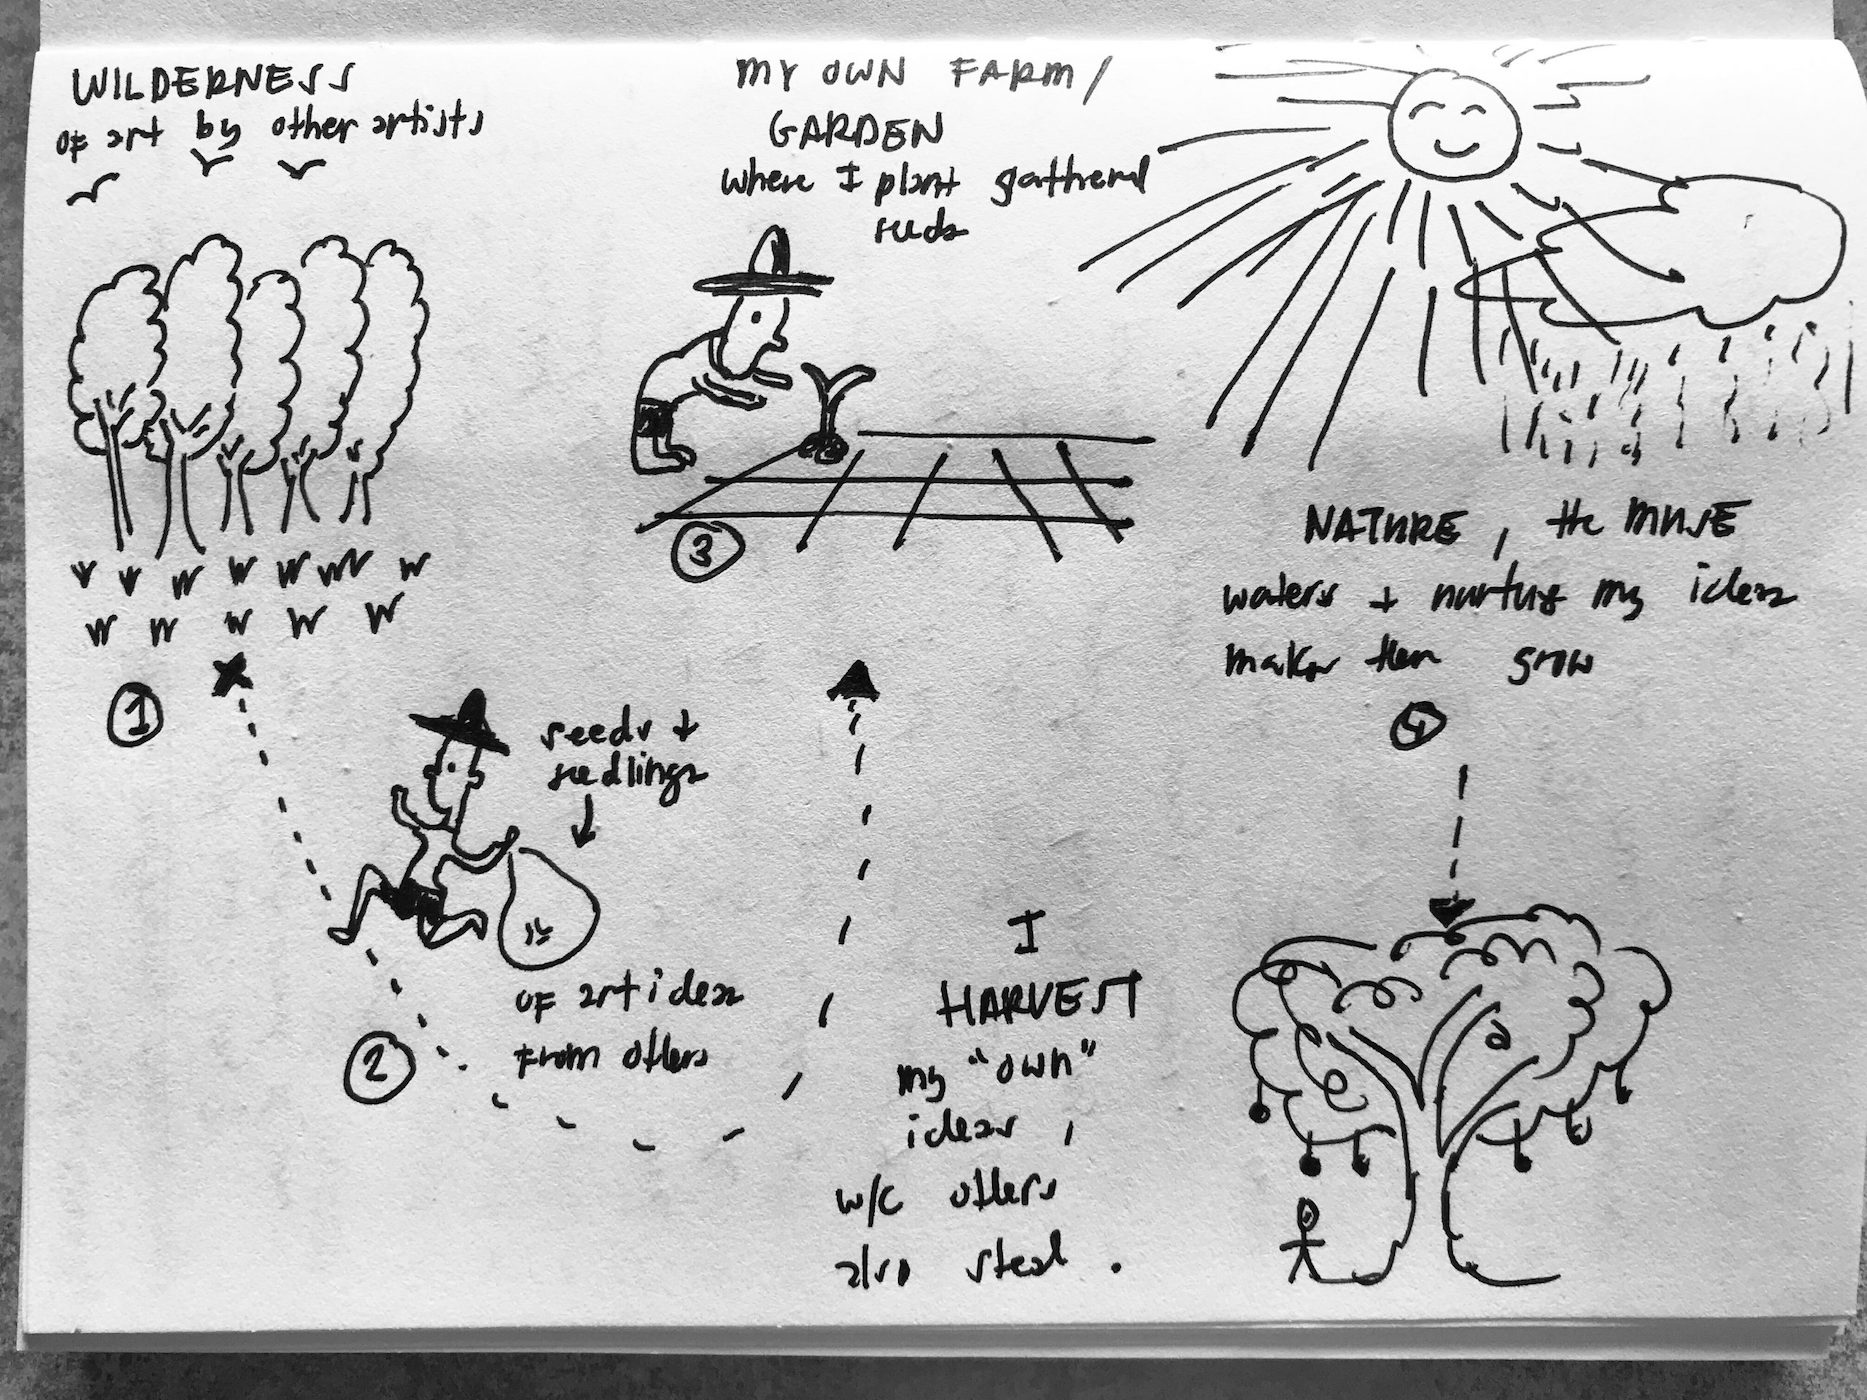 WILDERNESS
of art by other artists
1
seeds +
seedlings
of art ideas
from others
2
MY OWN FARM /
GARDEN
where I plant gathered
seeds
3
NATURE, the MUSE
waters + nurtures my ideas
makes them grow
4
I
HARVEST
my "own"
ideas,
w/c others
also steal.